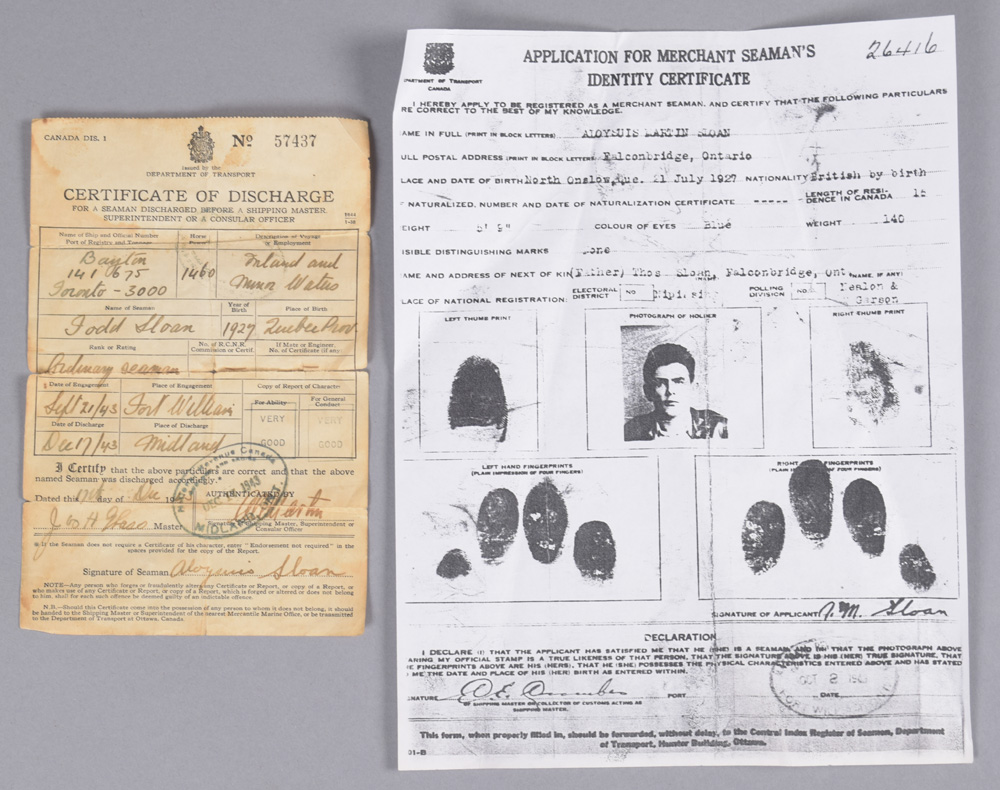 CANADA DIS. 1
No 57437
issued by the
DEPARTMENT OF TRANSPORT
CERTIFICATE OF DISCHARGE
FOR A SEAMAN DISCHARGED BEFORE A SHIPPING MASTER
SUPERINTENDENT OR A CONSULAR OFFICER
Name of Ship and Official Number
Port of Registry and Tonnage
Horse Power
Description of Voyage
or Employment
Bayton
141675
Toronto - 3000
1460
Inland and
Minor Waters
Name of Seaman
Year of Birth
Place of Birth
Todd Sloan
1927
Quebec Prov
Rank or Rating
No. of R.C.N.R.
Commission or Certif.
If Mate or Engineer,
No. of Certificate (if any)
Ordinary seaman
Date of Engagement
Place of Engagement
Copy of Report of Character
Sept 21/43
Fort William
For Ability
For General
Conduct
VERY
GOOD
VERY
GOOD
Date of Discharge
Place of Discharge
Dec 17/43
Midland
I Certify that the above particulars are correct and that the above
named Seaman was discharged accordingly.*
Dated this 17th day of Dec 1943
AUTHENTICATED BY
DEC 1943
MIDLAND, ONT.
Master
Shipping Master, Superintendent or
Consular Officer
If the Seaman does not require a Certificate of his character, enter "Endorsement not required" in the
spaces provided for the copy of the Report.
Signature of Seaman Aloysuis Sloan
NOTE—Any person who forges or fraudulently alters any Certificate or Report, or copy of a Report, or
who makes use of any Certificate or Report, or copy of a Report, which is forged or altered or does not belong
to him, shall for each such offence be deemed guilty of an indictable offence.
N.B.—Should this Certificate come into the possession of any person to whom it does not belong, it should
be handed to the Shipping Master or Superintendent of the nearest Mercantile Marine Office, or be transmitted
to the Department of Transport at Ottawa, Canada.
26416
DEPARTMENT OF TRANSPORT
CANADA
APPLICATION FOR MERCHANT SEAMAN'S
IDENTITY CERTIFICATE
I HEREBY APPLY TO BE REGISTERED AS A MERCHANT SEAMAN. AND CERTIFY THAT THE FOLLOWING PARTICULARS
RE CORRECT TO THE BEST OF MY KNOWLEDGE.
AME IN FULL (PRINT IN BLOCK LETTERS) ALOYSUIS MARTIN SLOAN
ULL POSTAL ADDRESS (PRINT IN BLOCK LETTERS) Falconbridge, Ontario
LACE AND DATE OF BIRTH North Onslow, Que. 21 July 1927 NATIONALITY British by birth
F NATURALIZED, NUMBER AND DATE OF NATURALIZATION CERTIFICATE ----- LENGTH OF RESI-
DENCE IN CANADA 15
EIGHT 5' 9" COLOUR OF EYES Blue WEIGHT 140
ISIBLE DISTINGUISHING MARKS one
AME AND ADDRESS OF NEXT OF KIN (Father) Thos Sloan, Falconbridge, Ont (NAME, IF ANY)
LACE OF NATIONAL REGISTRATION: ELECTORAL DISTRICT NO. POLLING DIVISION NO. Nealon &
Garson
LEFT THUMB PRINT
PHOTOGRAPH OF HOLDER
RIGHT THUMB PRINT
LEFT HAND FINGERPRINTS
(PLAIN IMPRESSION OF FOUR FINGERS)
RIGHT FINGERPRINTS
(PLAIN IMPRESSION OF FOUR FINGERS)
SIGNATURE OF APPLICANT A. M. Sloan
DECLARATION
I DECLARE (I) THAT THE APPLICANT HAS SATISFIED ME THAT HE (SHE) IS A SEAMAN AND THAT THE PHOTOGRAPH ABOVE
ANING MY OFFICIAL STAMP IS A TRUE LIKENESS OF THAT PERSON, THAT THE SIGNATURE ABOVE IS HIS (HER) TRUE SIGNATURE, THAT
E FINGERPRINTS ABOVE ARE HIS (HERS), THAT HE (SHE) POSSESSES THE PHYSICAL CHARACTERISTICS ENTERED ABOVE AND HAS STATED
ME THE DATE AND PLACE OF HIS (HER) BIRTH AS ENTERED WITHIN.
NATURE
PORT
DATE
OCT 2
OF SHIPPING MASTER OR COLLECTOR OF CUSTOMS ACTING AS
SHIPPING MASTER.
This form, when properly filled in, should be forwarded, without delay, to the Central Index Register of Seamen, Department
of Transport, Hunter Building, Ottawa.
31-B